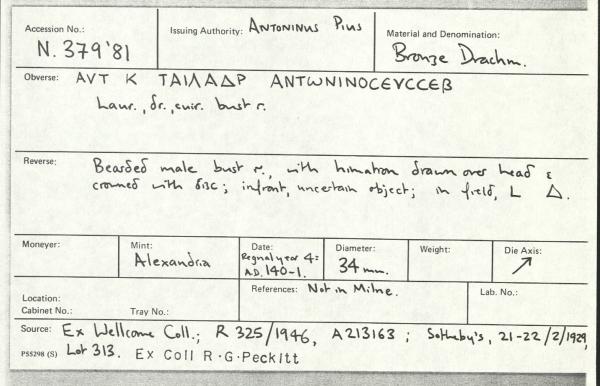 Accession No.: Issuing Authority: ANTONINUS PIUS Material and Denomination:
N. 379'81 Bronze Drachm.
Obverse: AVT K TAIΛAΔP ANTωNINOCЄVCCЄB
Laur., dr., cuir. bust r.
Reverse: Bearded male bust r., with himation drawn over head &
crowned with disc; infront, uncertain object; in field, L Δ.
Moneyer: Mint: Date: Diameter: Weight: Die Axis:
Alexandria Regnal year 4: 34 mm. ↗
A.D. 140-1.
Location: References: Not in Milne. Lab. No.:
Cabinet No.: Tray No.:
Source: Ex Wellcome Coll.; R 325/1946, A213163; Sotheby's, 21-22/2/1929,
PS5298 (S) Lot 313. Ex Coll R.G.Peckitt